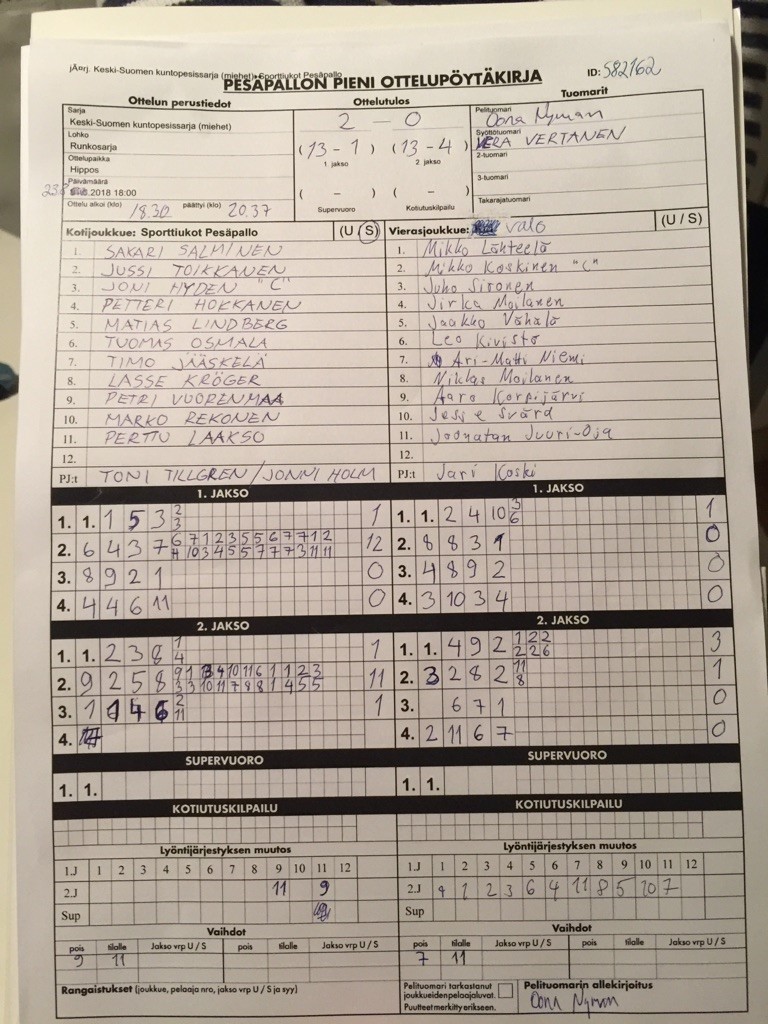 jÄ¤rj. Keski-Suomen kuntopesissarja (miehet), Sporttiukot Pesäpallo
PESÄPALLON PIENI OTTELUPÖYTÄKIRJA
ID: 582162
Ottelun perustiedot
Sarja
Keski-Suomen kuntopesissarja (miehet)
Lohko
Runkosarja
Ottelupaikka
Hippos
Päivämäärä
.2018 18:00
Ottelu alkoi (klo) 18.30 päättyi (klo) 20.37
Ottelutulos
2 - 0
(13 - 1) (13 - 4)
1. jakso 2. jakso
( - ) ( - )
Supervuoro Kotiutuskilpailu
Tuomarit
Pelituomari
Oona Nyman
Syöttötuomari
VERA VERTANEN
2-tuomari
3-tuomari
Takarajatuomari
Kotijoukkue: Sporttiukot Pesäpallo (U / S)
1. SAKARI SALMINEN
2. JUSSI TOIKKANEN
3. JONI HYDEN "C"
4. PETTERI HOKKANEN
5. MATIAS LINDBERG
6. TUOMAS OSMALA
7. TIMO JÄÄSKELÄ
8. LASSE KRÖGER
9. PETRI VUORENMAA
10. MARKO REKONEN
11. PERTTU LAAKSO
12.
PJ:t TONI TILLGREN / JONNI HOLM
Vierasjoukkue: Valo (U / S)
1. Mikko Lähteelä
2. Mikko Koskinen "C"
3. Juho Sironen
4. Jirka Moilanen
5. Jaakko Vähälä
6. Leo Kivistö
7. Ari-Matti Niemi
8. Niklas Moilanen
9. Aaro Korpijärvi
10. Jesse Svärd
11. Joonatan Juuri-Oja
12.
PJ:t Jari Koski
1. JAKSO
1. 1. 1 5 3 2 1
3
2. 6 4 3 7 6 7 1 2 3 5 5 6 7 7 1 2 12
4 10 3 4 5 5 7 7 7 3 11 11
3. 8 9 2 1 0
4. 4 4 6 11 0
1. JAKSO
1. 1. 2 4 10 3 1
6
2. 8 8 3 1 0
3. 4 8 9 2 0
4. 3 10 3 4 0
2. JAKSO
1. 1. 2 3 8 1 1
4
2. 9 2 5 8 9 1 3 4 10 11 6 1 1 2 3 11
3 3 10 11 7 8 8 1 4 5 5
3. 1 4 6 2 1
11
4.
2. JAKSO
1. 1. 4 9 2 1 2 2 3
2 2 6
2. 3 2 8 2 11 1
8
3. 6 7 1 0
4. 2 11 6 7 0
SUPERVUORO
1. 1.
SUPERVUORO
1. 1.
KOTIUTUSKILPAILU
KOTIUTUSKILPAILU
Lyöntijärjestyksen muutos
1.J 1 2 3 4 5 6 7 8 9 10 11 12
2.J 11 9
Sup
Lyöntijärjestyksen muutos
1.J 1 2 3 4 5 6 7 8 9 10 11 12
2.J 9 1 2 3 6 4 11 8 5 10 7
Sup
Vaihdot
pois tilalle Jakso vrp U / S pois tilalle Jakso vrp U / S
9 11
Vaihdot
pois tilalle Jakso vrp U / S pois tilalle Jakso vrp U / S
7 11
Rangaistukset (joukkue, pelaaja nro, jakso vrp U / S ja syy)
Pelituomari tarkastanut
joukkueiden pelaajaluvat.
Puutteet merkitty erikseen.
Pelituomarin allekirjoitus
Oona Nyman